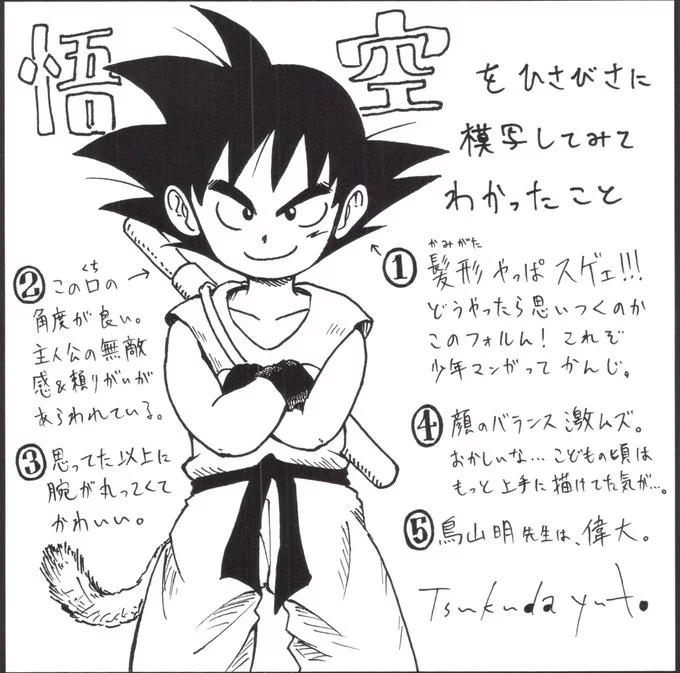 悟空をひさびさに
模写してみて
わかったこと
① 髪形 やっぱ スゲェ!!!
かみがた
どうやったら思いつくのか
このフォルム! これぞ
少年マンガって かんじ。
② この口の
くち
角度が良い。
主人公の無敵
感&頼りがいが
あらわれている。
③ 思ってた以上に
腕が丸ってくて
かわいい。
④ 顔のバランス 激ムズ。
おかしいな… こどもの頃は
もっと上手に描けてた気が…。
⑤ 鳥山明先生は、偉大。
Tsukuda yuto.